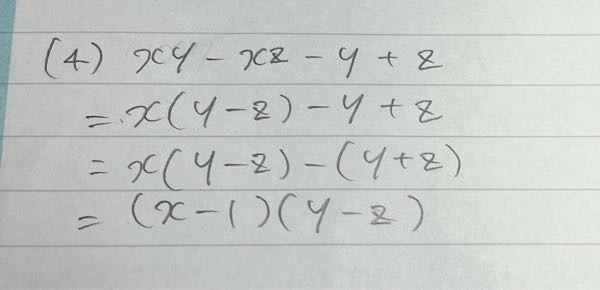 (4) xy - xz - y + z
= x(y-z) - y + z
= x(y-z) - (y+z)
= (x-1)(y-z)